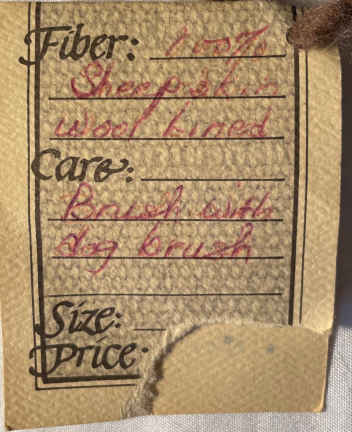 Fiber: 100%
Sheepskin
wool Lined
Care:
Brush with
dog brush
Size:
Price: